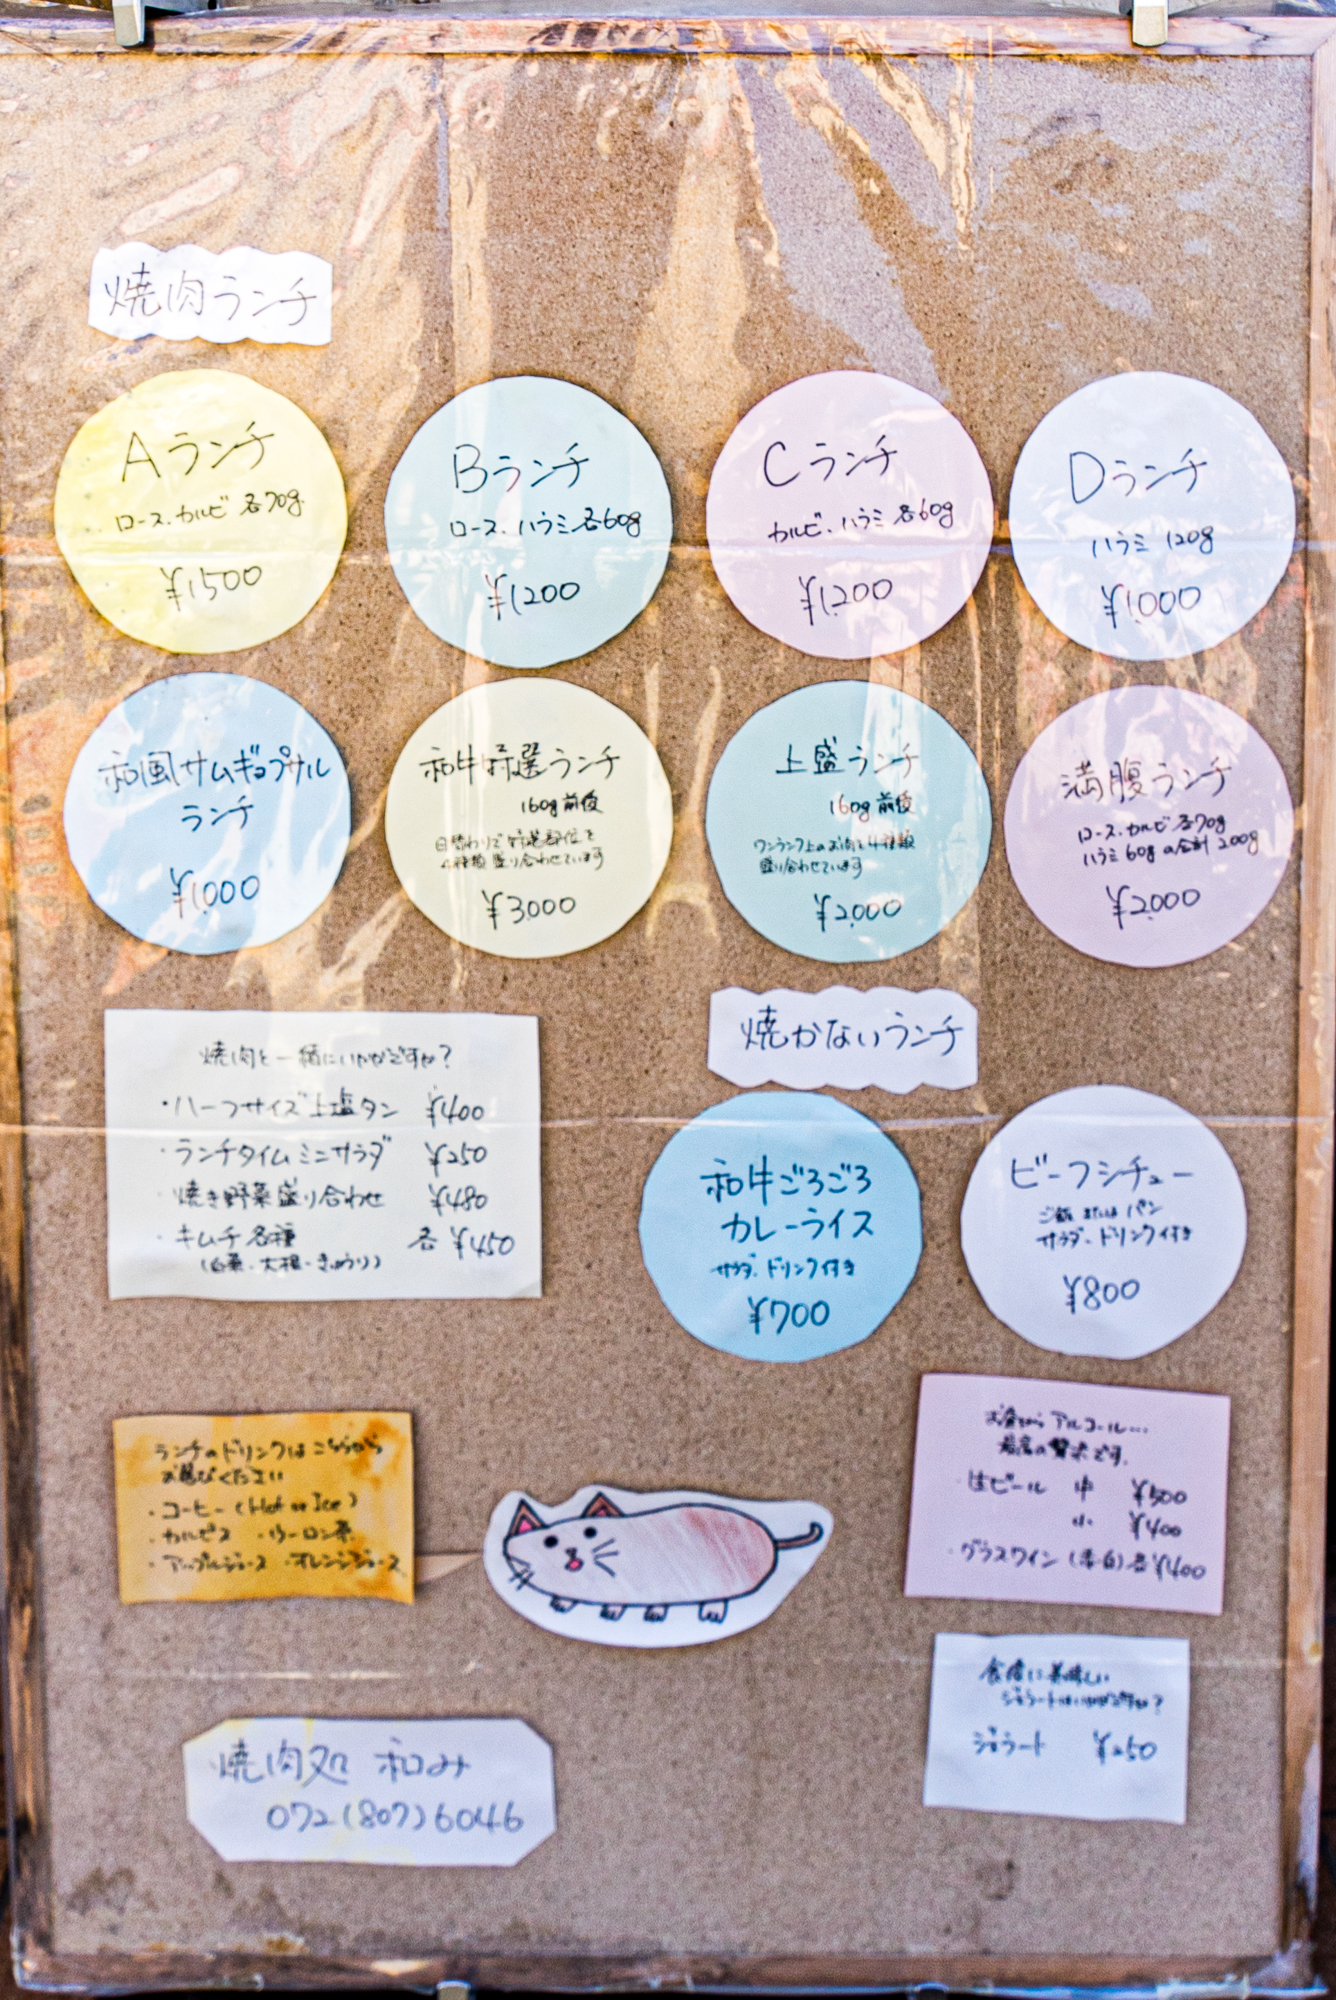 焼肉ランチ
Aランチ
ロース、カルビ 各70g
¥1500
Bランチ
ロース、ハラミ 各60g
¥1200
Cランチ
カルビ、ハラミ 各60g
¥1,200
Dランチ
ハラミ 120g
¥1,000
和風サムギョプサル
ランチ
¥1,000
和牛特選ランチ
160g前後
日替わりで特選部位を
4種類盛り合わせています
¥3,000
上盛ランチ
160g前後
ワンランク上のお肉を4種類
盛り合わせています
¥2,000
満腹ランチ
ロース、カルビ 各70g
ハラミ 60gの合計 200g
¥2,000
焼肉と一緒にいかがですか?
・ハーフサイズ上塩タン ¥400
・ランチタイムミニサラダ ¥250
・焼き野菜盛り合わせ ¥480
・キムチ各種 各¥450
(白菜・大根・きゅうり)
焼かないランチ
和牛ごろごろ
カレーライス
サラダ、ドリンク付き
¥700
ビーフシチュー
ご飯またはパン
サラダ・ドリンク付き
¥800
ランチのドリンクはこちらから
お選びください
・コーヒー(Hot or Ice)
・カルピス ・ウーロン茶
・アップルジュース ・オレンジジュース
お昼からアルコール...
最高の贅沢です。
・生ビール 中 ¥500
小 ¥400
・グラスワイン(赤・白)各¥400
食後に美味しい
ジェラートはいかがですか?
ジェラート ¥250
焼肉処 和み
072(807)6046